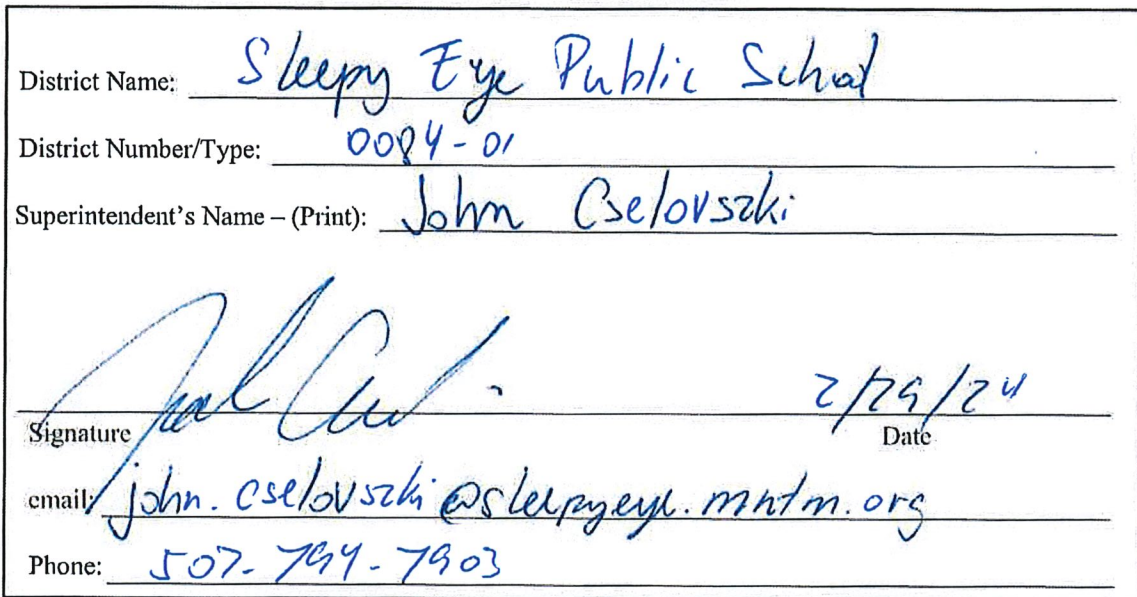 District Name: Sleepy Eye Public School
District Number/Type: 0084-01
Superintendent's Name – (Print): John Cselovszki
2/29/24
Signature Date
email: john.cselovszki@sleepyeye.mntm.org
Phone: 507-794-7903